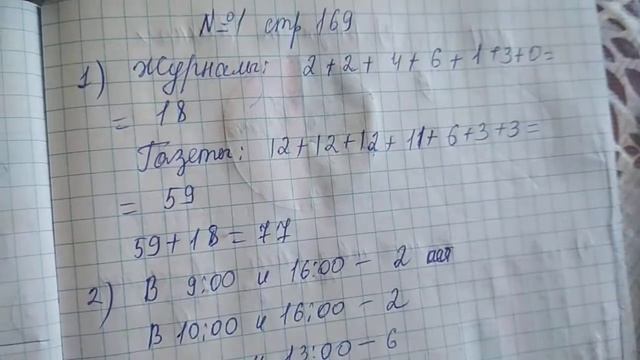 №1 стр 169
1) Журналы: 2+2+4+6+1+3+0=
= 18
Газеты: 12+12+12+11+6+3+3=
= 59
59+18=77
2) В 9:00 и 16:00 - 2
В 10:00 и 16:00 - 2
13:00 - 6